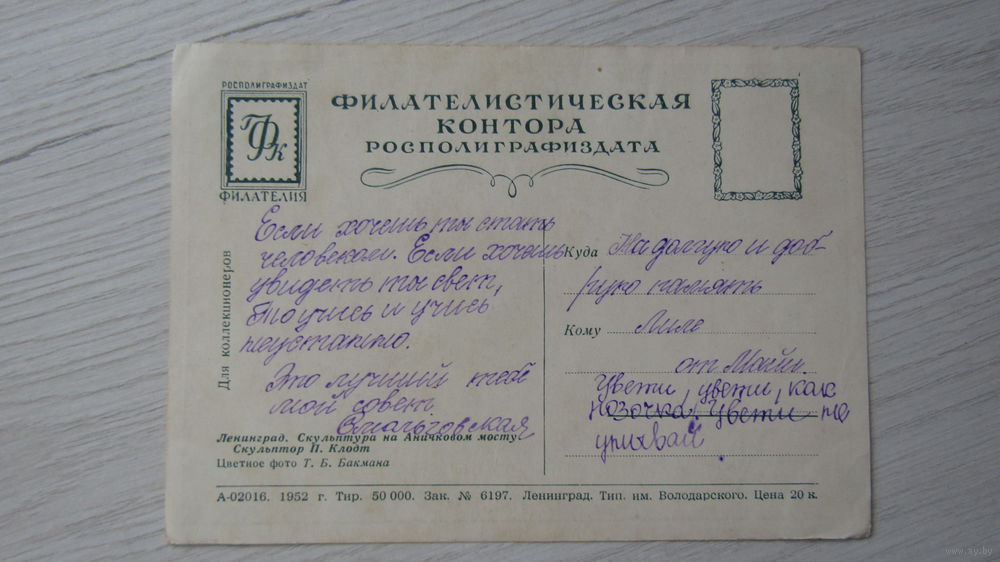 РОСПОЛИГРАФИЗДАТ
ГФК
ФИЛАТЕЛИЯ
ФИЛАТЕЛИСТИЧЕСКАЯ
КОНТОРА
РОСПОЛИГРАФИЗДАТА
Для коллекционеров
Если хочешь ты стать
человеком. Если хочешь
увидеть ты свет,
То учись и учись
неустанно.
Это лучший тебе
мой совет
Ленинград. Скульптура на Аничковом мосту.
Скульптор П. Клодт
Цветное фото Т. Б. Бакмана
Куда На долгую и доб-
рую память
Кому Лиле
от Майи.
Цвети, цвети, как
розочка. Цвети не
унывай
А-02016. 1952 г. Тир. 50 000. Зак. № 6197. Ленинград. Тип. им. Володарского. Цена 20 к.
www.ay.by